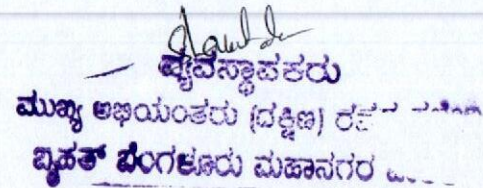 ವ್ಯವಸ್ಥಾಪಕರು
ಮುಖ್ಯ ಅಭಿಯಂತರು (ದಕ್ಷಿಣ)
ಬೃಹತ್ ಬೆಂಗಳೂರು ಮಹಾನಗರ